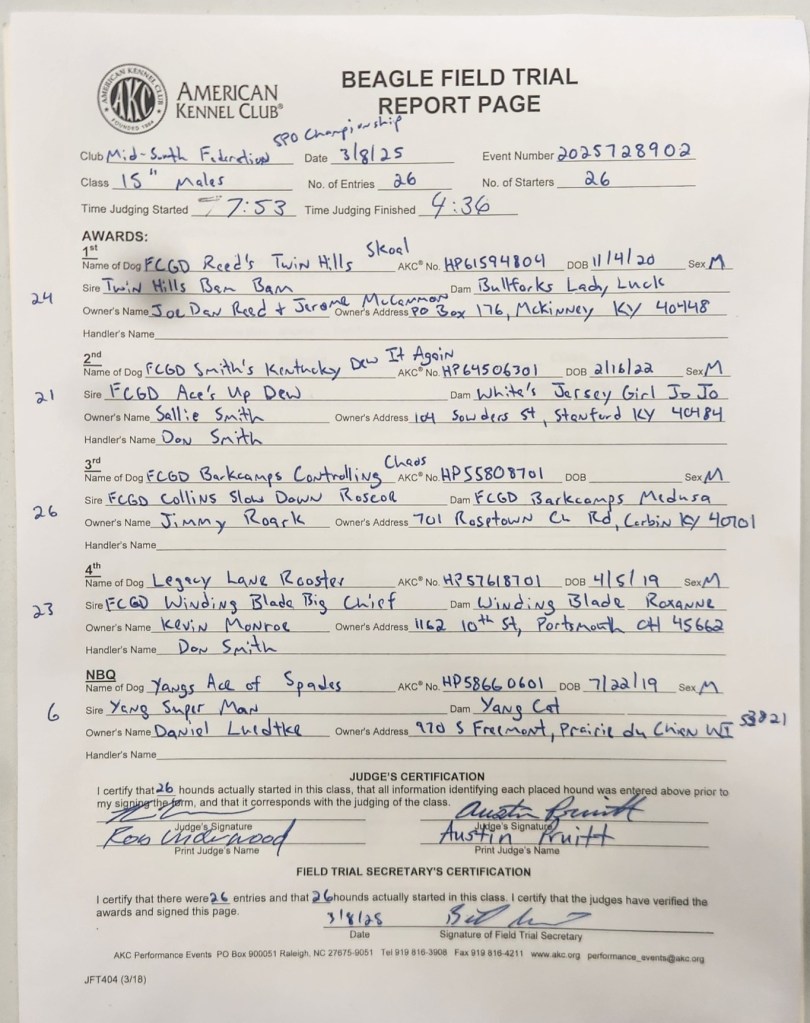 AMERICAN KENNEL CLUB
FOUNDED 1884
AKC
AMERICAN
KENNEL CLUB®
BEAGLE FIELD TRIAL
REPORT PAGE
SPO Championship
Club Mid-South Federation Date 3/8/25 Event Number 2025728902
Class 15" Males No. of Entries 26 No. of Starters 26
Time Judging Started 7:53 Time Judging Finished 4:36
AWARDS:
1st
Name of Dog FCGD Reed's Twin Hills Skoal AKC® No. HP61594804 DOB 11/4/20 Sex M
24 Sire Twin Hills Bam Bam Dam Bullforks Lady Luck
Owner's Name Joe Dan Reed + Jerome McCammon Owner's Address PO Box 176, McKinney KY 40448
Handler's Name
2nd
Name of Dog FCGD Smith's Kentucky Dew It Again AKC® No. HP64506301 DOB 2/16/22 Sex M
21 Sire FCGD Ace's Up Dew Dam White's Jersey Girl Jo Jo
Owner's Name Sallie Smith Owner's Address 104 Sowders St, Stanford KY 40484
Handler's Name Don Smith
3rd
Name of Dog FCGD Barkcamps Controlling Chaos AKC® No. HP55808701 DOB Sex M
26 Sire FCGD Collins Slow Down Roscoe Dam FCGD Barkcamps Medusa
Owner's Name Jimmy Roark Owner's Address 701 Rosetown Ch Rd, Corbin KY 40701
Handler's Name
4th
Name of Dog Legacy Lane Rooster AKC® No. HP57618701 DOB 4/5/19 Sex M
23 Sire FCGD Winding Blade Big Chief Dam Winding Blade Roxanne
Owner's Name Kevin Monroe Owner's Address 1162 10th St, Portsmouth OH 45662
Handler's Name Don Smith
NBQ
Name of Dog Yangs Ace of Spades AKC® No. HP58660601 DOB 7/22/19 Sex M
6 Sire Yang Super Man Dam Yang Cat
Owner's Name Daniel Luedtke Owner's Address 970 S Freemont, Prairie du Chien WI 53821
Handler's Name
JUDGE'S CERTIFICATION
I certify that 26 hounds actually started in this class, that all information identifying each placed hound was entered above prior to
my signing the form, and that it corresponds with the judging of the class.
Austin Pruitt
Judge's Signature Judge's Signature
Rob Underwood Austin Pruitt
Print Judge's Name Print Judge's Name
FIELD TRIAL SECRETARY'S CERTIFICATION
I certify that there were 26 entries and that 26 hounds actually started in this class. I certify that the judges have verified the
awards and signed this page.
3/8/25
Date Signature of Field Trial Secretary
AKC Performance Events PO Box 900051 Raleigh, NC 27675-9051 Tel 919 816-3908 Fax 919 816-4211 www.akc.org performance_events@akc.org
JFT404 (3/18)